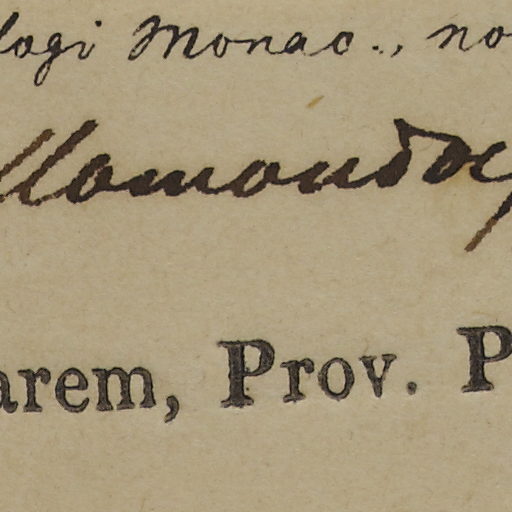 logi Monac., no
arem, Prov. P